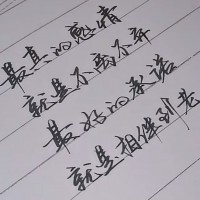 最真的感情
就是不离不弃
最好的承诺
就是相伴到老